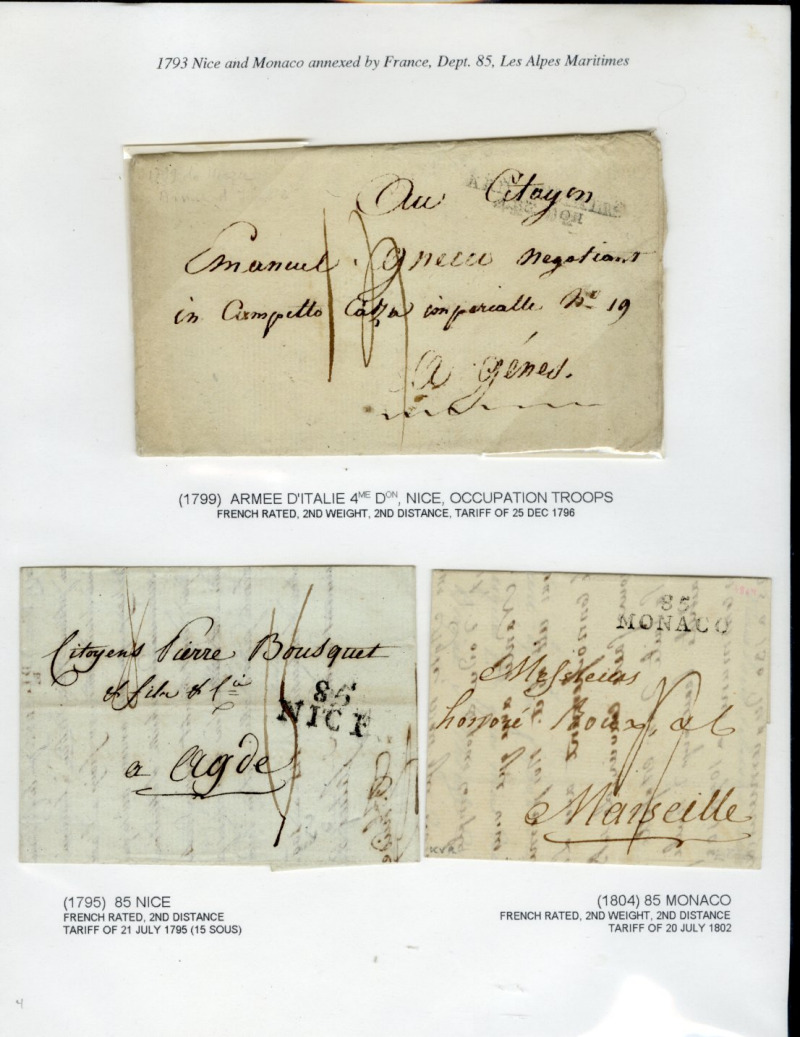 1793 Nice and Monaco annexed by France, Dept. 85, Les Alpes Maritimes
Au Citoyen
Emanuel Gnecco negotiant
in Campetto Casa imperialle No 19
A Génes.
(1799) ARMEE D'ITALIE 4ME DON, NICE, OCCUPATION TROOPS
FRENCH RATED, 2ND WEIGHT, 2ND DISTANCE, TARIFF OF 25 DEC 1796
Citoyens Pierre Bousquet
& fils & Cie
85
NICE
a Agde
85
MONACO
Messieurs
honnoré Roux, &
Marseille
KVR
(1795) 85 NICE
FRENCH RATED, 2ND DISTANCE
TARIFF OF 21 JULY 1795 (15 SOUS)
(1804) 85 MONACO
FRENCH RATED, 2ND WEIGHT, 2ND DISTANCE
TARIFF OF 20 JULY 1802
4